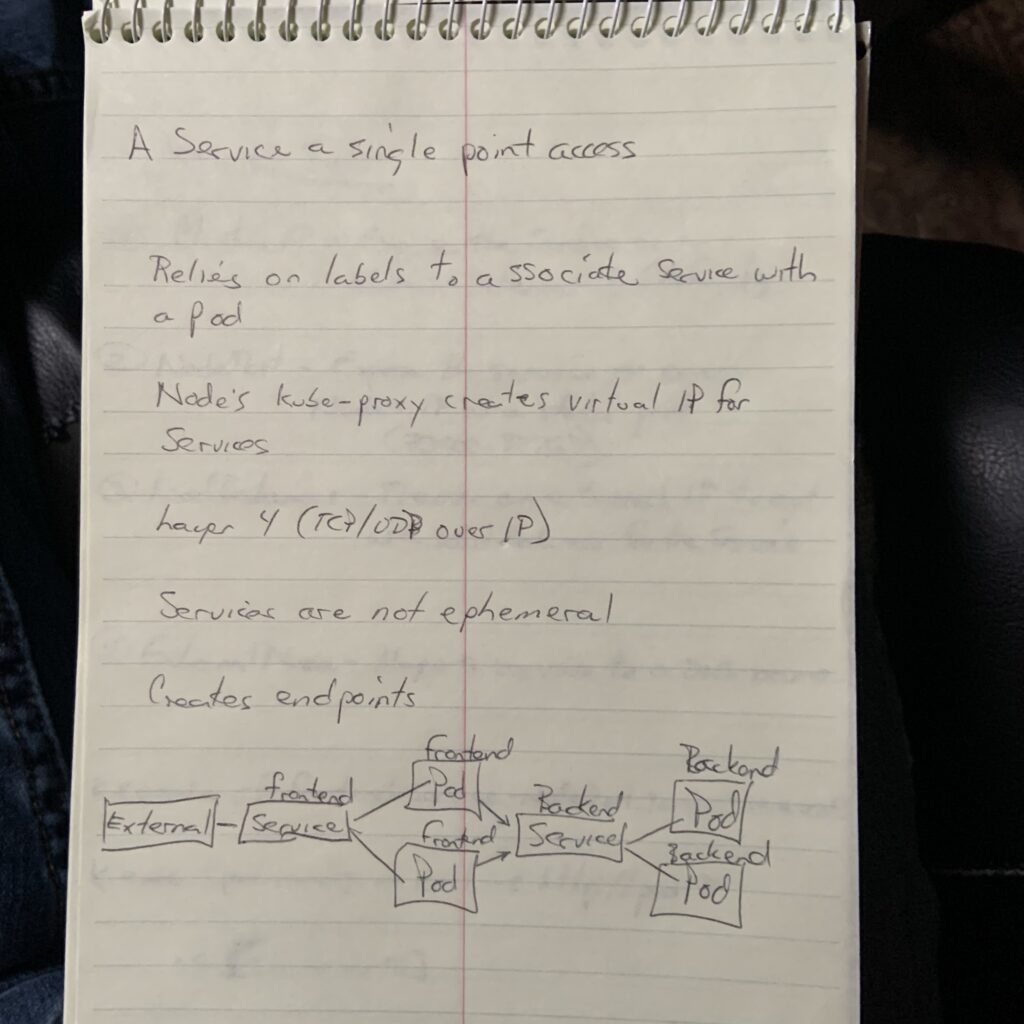 A Service a single point access
Relies on labels to associate Service with
a Pod
Node's kube-proxy creates virtual IP for
Services
Layer 4 (TCP/UDP over IP)
Services are not ephemeral
Creates endpoints
External
frontend
Service
frontend
Pod
frontend
Pod
Backend
Service
Backend
Pod
Backend
Pod